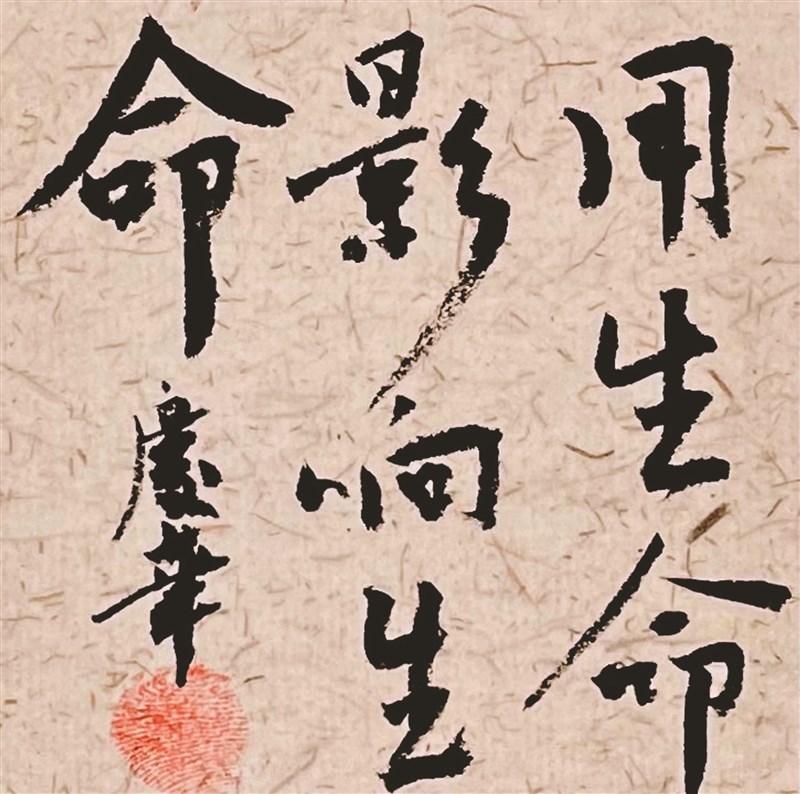 用生命
影响生
命
慶華